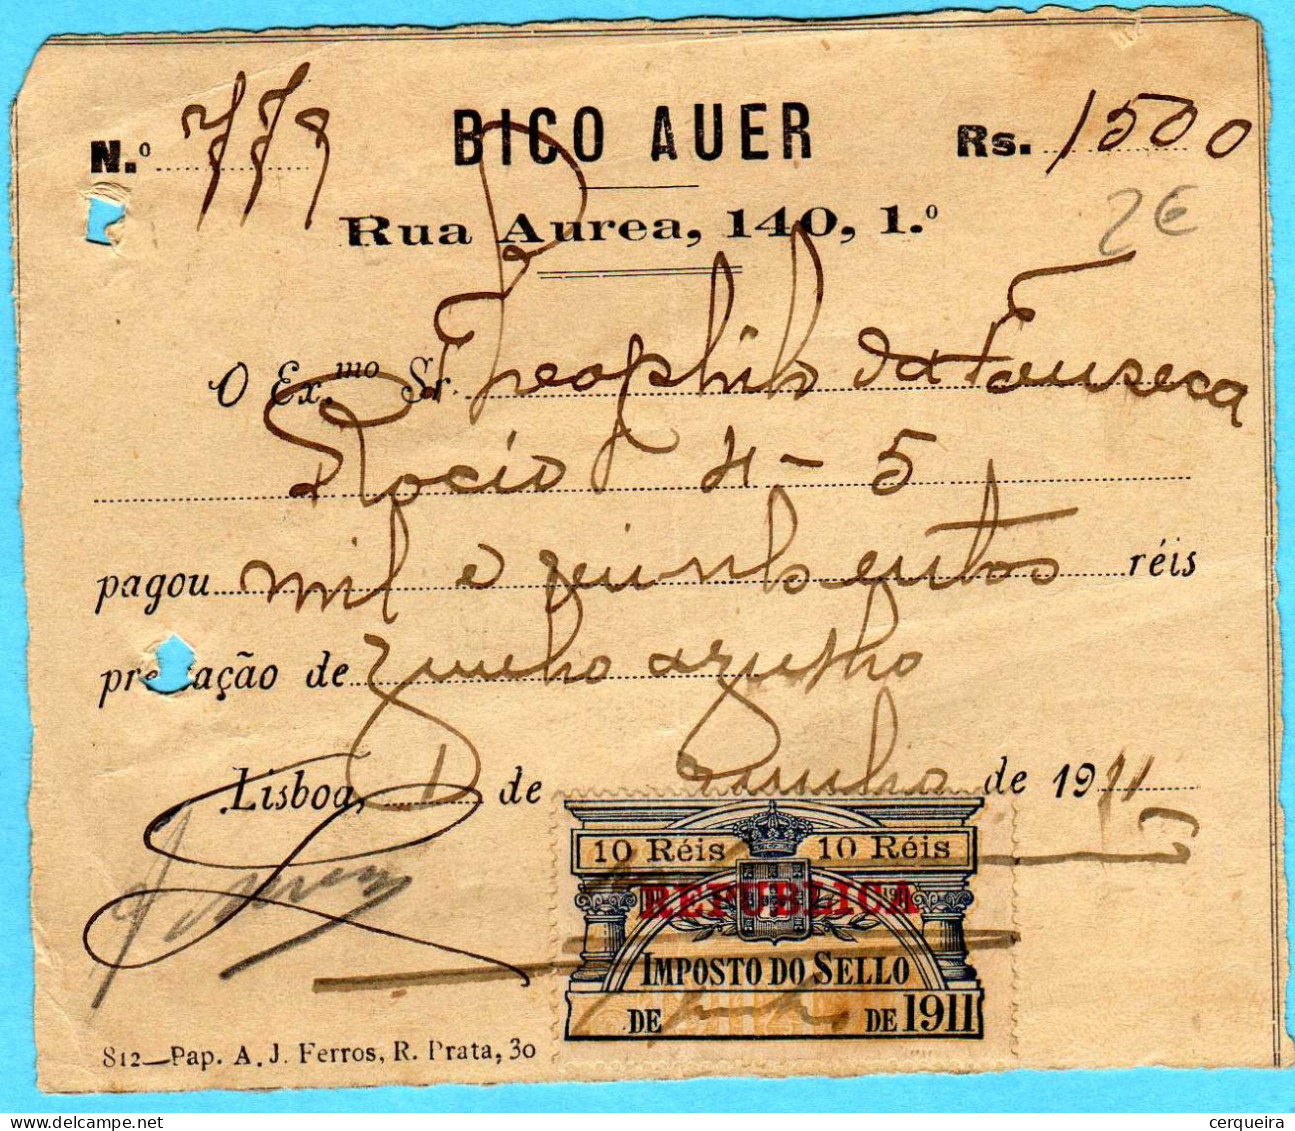 N.º 779 BICO AUER Rs. 1500
2€
Rua Aurea, 140, 1.º
O Ex.mo Sr. Theophilo da Fonseca
Rocio 4-5
pagou mil e quinhentos réis
prestação de Junho
Lisboa, 1 de Junho de 1911
10 Réis 10 Réis
REPUBLICA
IMPOSTO DO SELLO
DE Junho DE 1911
812—Pap. A. J. Ferros, R. Prata, 30
cerqueira